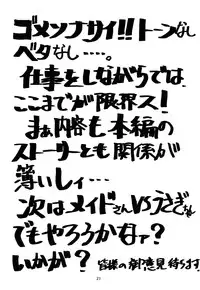 ゴメンナサイ!!トーンなし
ベタなし‥‥。
仕事をしながらでは、
ここまでが限界ス!
まぁ内容も本編の
ストーリーとも関係が
薄いしィ…
次はメイドさんVSうさぎちゃん
でもやろうかなァ?
いかが?皆様の御意見待ちます
21